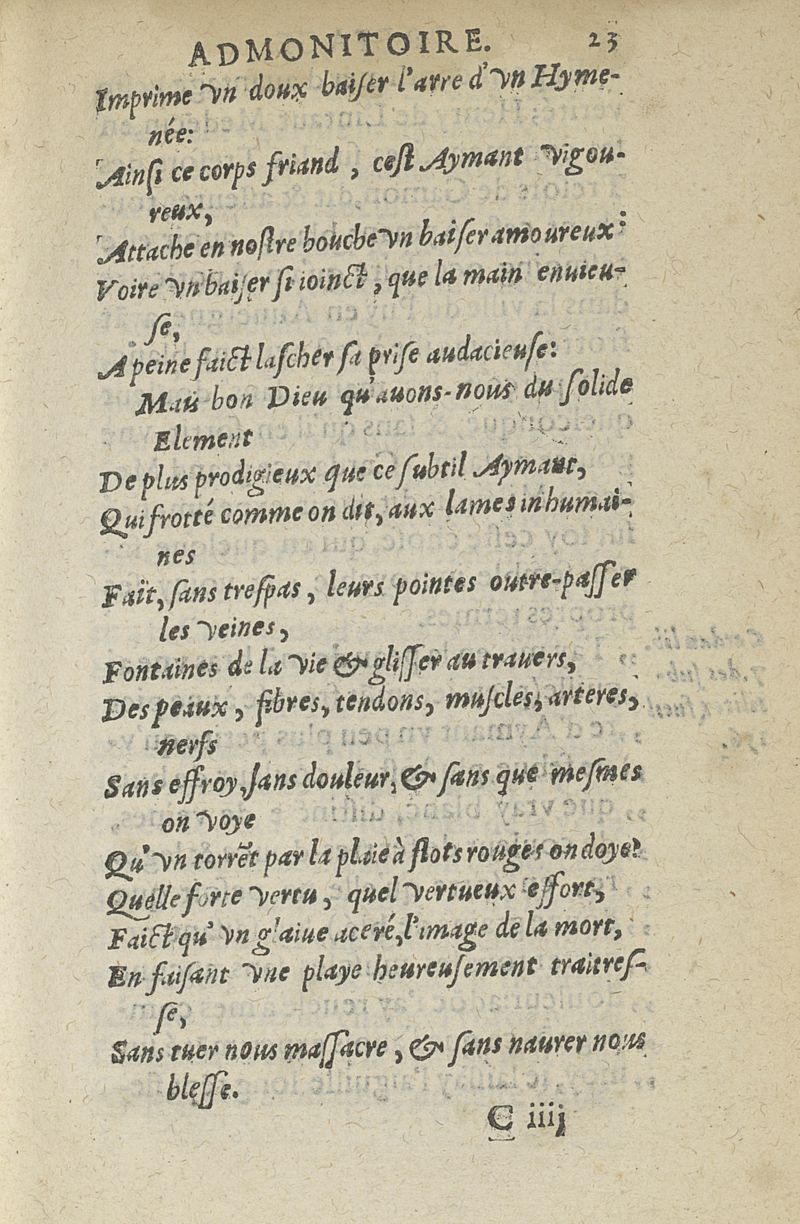 ADMONITOIRE. 23
Imprime vn doux baiſer l'arre d'vn Hyme-
née:
Ainſi ce corps friand, ceſt Aymant vigou-
reux,
Attache en noſtre bouche vn baiſer amoureux:
Voire vn baiſer ſi ioinct, que la main enuieu-
ſe,
A peine faict laſcher ſa priſe audacieuſe:
Mais bon Dieu qu'auons-nous du ſolide
Element
De plus prodigieux que ce ſubtil Aymant,
Qui frotté comme on dit, aux lames inhumai-
nes
Faït, ſans treſpas, leurs pointes outre-paſſer
les veines,
Fontaines de la vie & gliſſer au trauers,
Des peaux, fibres, tendons, muſcles, arteres,
nerfs
Sans effroy, ſans douleur, & ſans que meſmes
on voye
Qu'vn torrẽt par la plaie à flots rouges ondoye?
Quelle forte vertu, quel vertueux effort,
Faict qu'vn glaiue aceré, l'image de la mort,
En faiſant vne playe heureuſement traitreſ-
ſe,
Sans tuer nous maſſacre, & ſans naurer nous
bleſſe.
C iiij